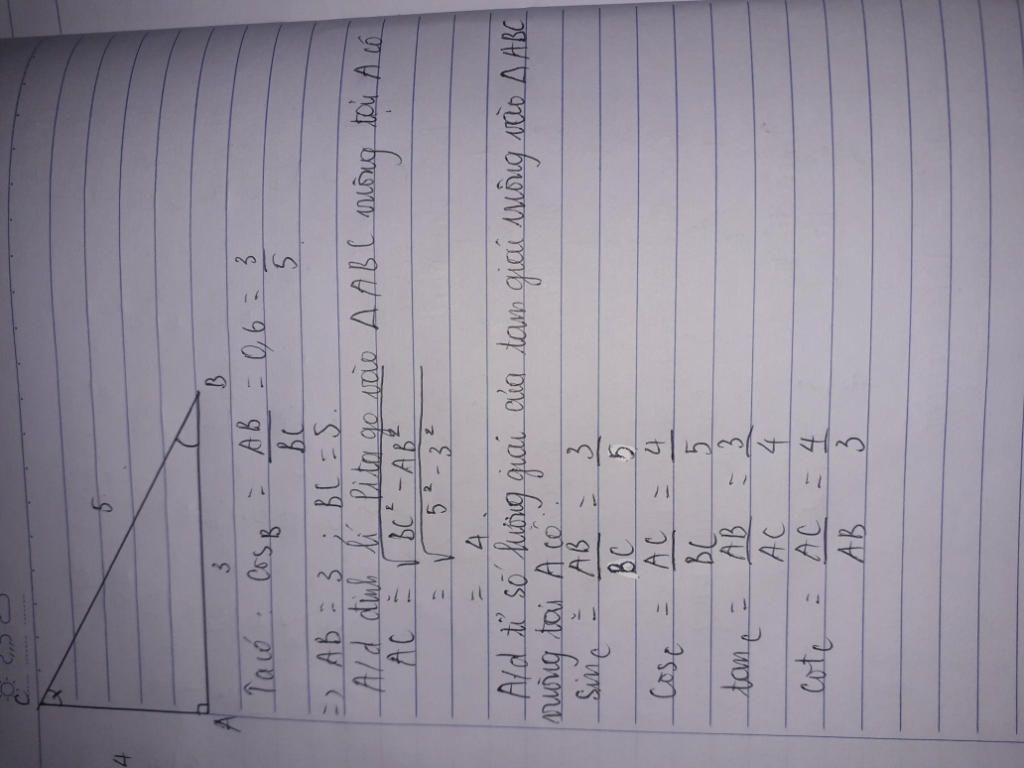 4
C
5
3
A
B
Ta có : cos_B = AB/BC = 0,6 = 3/5
=> AB = 3 ; BC = 5.
A/d định lí Pitago vào Δ ABC vuông tại A có
AC = √(BC² - AB²)
= √(5² - 3²)
= 4
A/d tỉ số lượng giác của tam giác vuông vào Δ ABC
vuông tại A có:
sin_C = AB/BC = 3/5
cos_C = AC/BC = 4/5
tan_C = AB/AC = 3/4
cot_C = AC/AB = 4/3